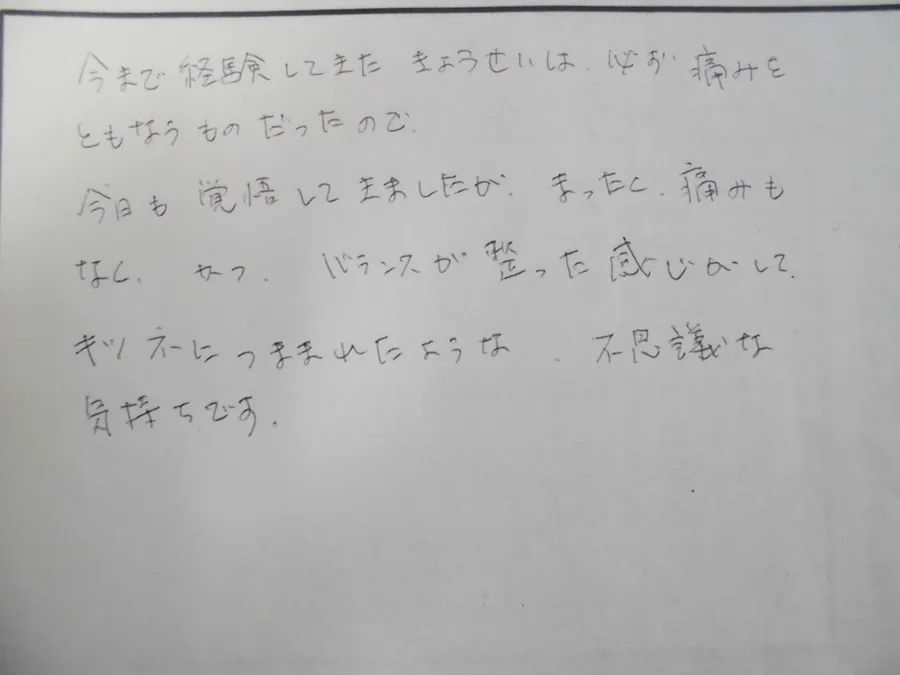 今まで経験してきた きょうせいは、必ず 痛みを
ともなうものだったので、
今日も 覚悟してきましたが、まったく、痛みも
なく、かつ、バランスが 整った感じがして、
キツネにつままれたような、不思議な
気持ちです。